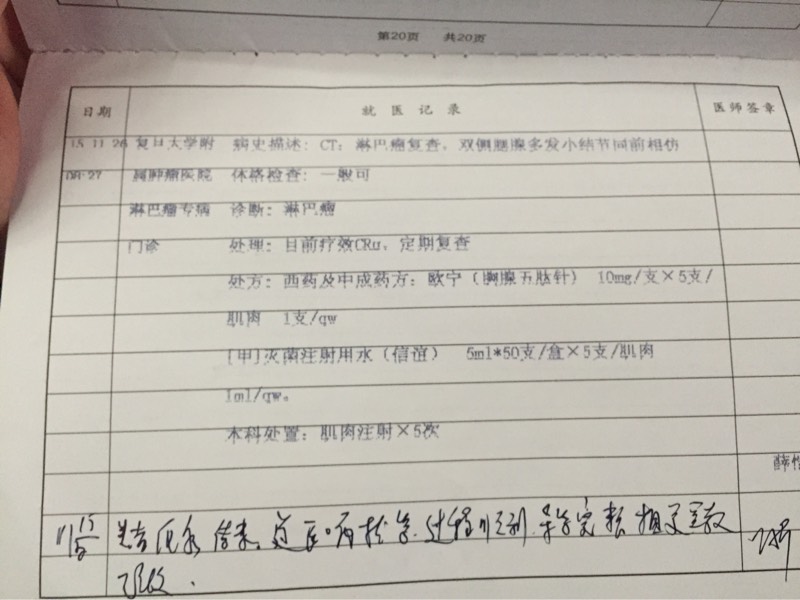 第20页 共20页
日期 就医记录 医师签章
15-11-26 复旦大学附 病史描述：CT：淋巴瘤复查，双侧腮腺多发小结节同前相仿
08:27 属肿瘤医院 体格检查：一般可
淋巴瘤专病 诊断：淋巴瘤
门诊 处理：目前疗效CRu，定期复查
处方：西药及中成药方：欧宁（胸腺五肽针） 10mg/支×5支/
肌肉 1支/qw
[甲]灭菌注射用水（信谊） 5ml*50支/盒×5支/肌肉
1ml/qw。
本科处置：肌肉注射×5次